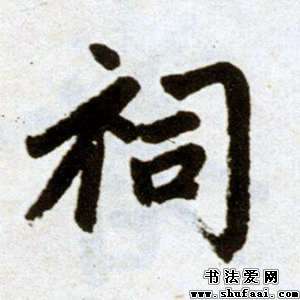 祠
书法爱网
www.shufaai.com